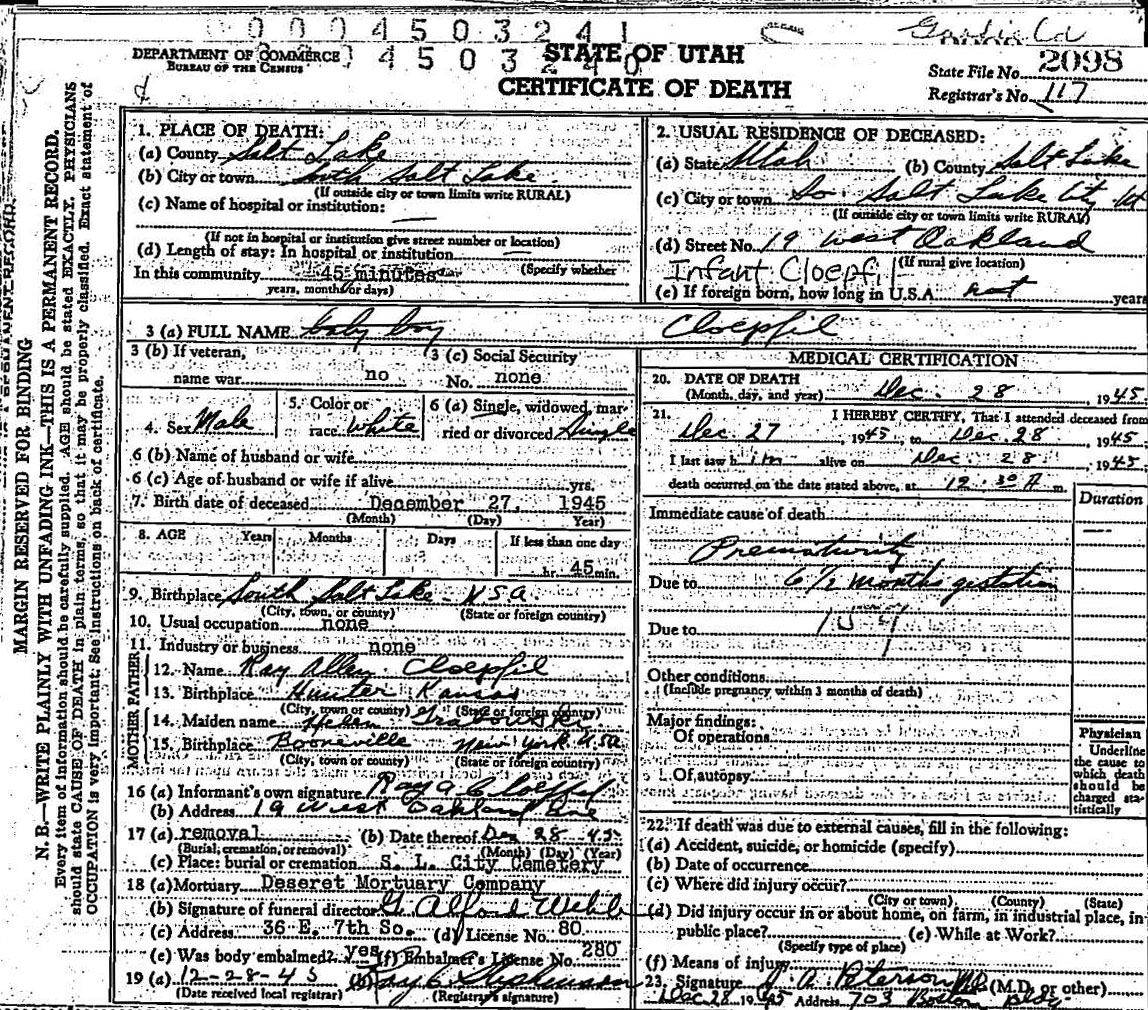 0 0 0 4 5 0 3 2 4 1
DEPARTMENT OF COMMERCE
BUREAU OF THE CENSUS
4 5 0 3 2 4 0
STATE OF UTAH
CERTIFICATE OF DEATH
State File No. 2098
Registrar's No. 117
MARGIN RESERVED FOR BINDING
N. B.—WRITE PLAINLY WITH UNFADING INK—THIS IS A PERMANENT RECORD.
Every item of information should be carefully supplied. AGE should be stated EXACTLY. PHYSICIANS
should state CAUSE OF DEATH in plain terms, so that it may be properly classified. Exact statement of
OCCUPATION is very important. See instructions on back of certificate.
1. PLACE OF DEATH:
(a) County Salt Lake
(b) City or town South Salt Lake
(If outside city or town limits write RURAL)
(c) Name of hospital or institution: —
(If not in hospital or institution give street number or location)
(d) Length of stay: In hospital or institution —
(Specify whether
In this community 45 minutes
years, months or days)
2. USUAL RESIDENCE OF DECEASED:
(a) State Utah (b) County Salt Lake
(c) City or town So. Salt Lake City Ut
(If outside city or town limits write RURAL)
(d) Street No. 19 West Oakland
Infant Cloepfil (If rural give location)
(e) If foreign born, how long in U.S.A. not years
3 (a) FULL NAME baby boy Cloepfil
3 (b) If veteran, name war no
3 (c) Social Security No. none
4. Sex Male
5. Color or race White
6 (a) Single, widowed, married or divorced Single
6 (b) Name of husband or wife
6 (c) Age of husband or wife if alive yrs.
7. Birth date of deceased December 27, 1945
(Month) (Day) Year)
8. AGE Years Months Days If less than one day
hr. 45 min.
9. Birthplace South Salt Lake - USA
(City, town, or county) (State or foreign country)
10. Usual occupation none
11. Industry or business none
FATHER
12. Name Ray Allen Cloepfil
13. Birthplace Hunter Kansas
(City, town or county) (State or foreign country)
MOTHER
14. Maiden name Helen
15. Birthplace Booneville New York USA
(City, town or county) (State or foreign country)
16 (a) Informant's own signature Ray A Cloepfil
(b) Address 19 West Oakland Ave
17 (a) removal (b) Date thereof Dec 28 45
(Burial, cremation, or removal) (Month) (Day) (Year)
(c) Place: burial or cremation S. L. City Cemetery
18 (a) Mortuary Deseret Mortuary Company
(b) Signature of funeral director G. Alford Webb
(c) Address 36 E. 7th So. (d) License No. 80
(e) Was body embalmed? yes (f) Embalmer's License No. 280
19 (a) 12-28-45 (b) Ray C Stephenson
(Date received local registrar) (Registrar's signature)
MEDICAL CERTIFICATION
20. DATE OF DEATH
(Month, day, and year) Dec. 28, 1945
21. I HEREBY CERTIFY, That I attended deceased from
Dec 27, 1945, to Dec. 28, 1945
I last saw him alive on Dec. 28, 1945
death occurred on the date stated above, at 12:30 A m.
Duration
Immediate cause of death —
Prematurity
Due to 6 1/2 months gestation
Due to
Other conditions
(Include pregnancy within 3 months of death)
Major findings:
Of operations
Of autopsy
Physician
Underline
the cause to
which death
should be
charged sta-
tistically
22. If death was due to external causes, fill in the following:
(a) Accident, suicide, or homicide (specify)
(b) Date of occurrence
(c) Where did injury occur?
(City or town), (County) (State)
(d) Did injury occur in or about home, on farm, in industrial place, in
public place? (e) While at Work?
(Specify type of place)
(f) Means of injury
23. Signature A. Peterson MD (M.D. or other)
Dec 28 1945 Address 703 Boston Bldg